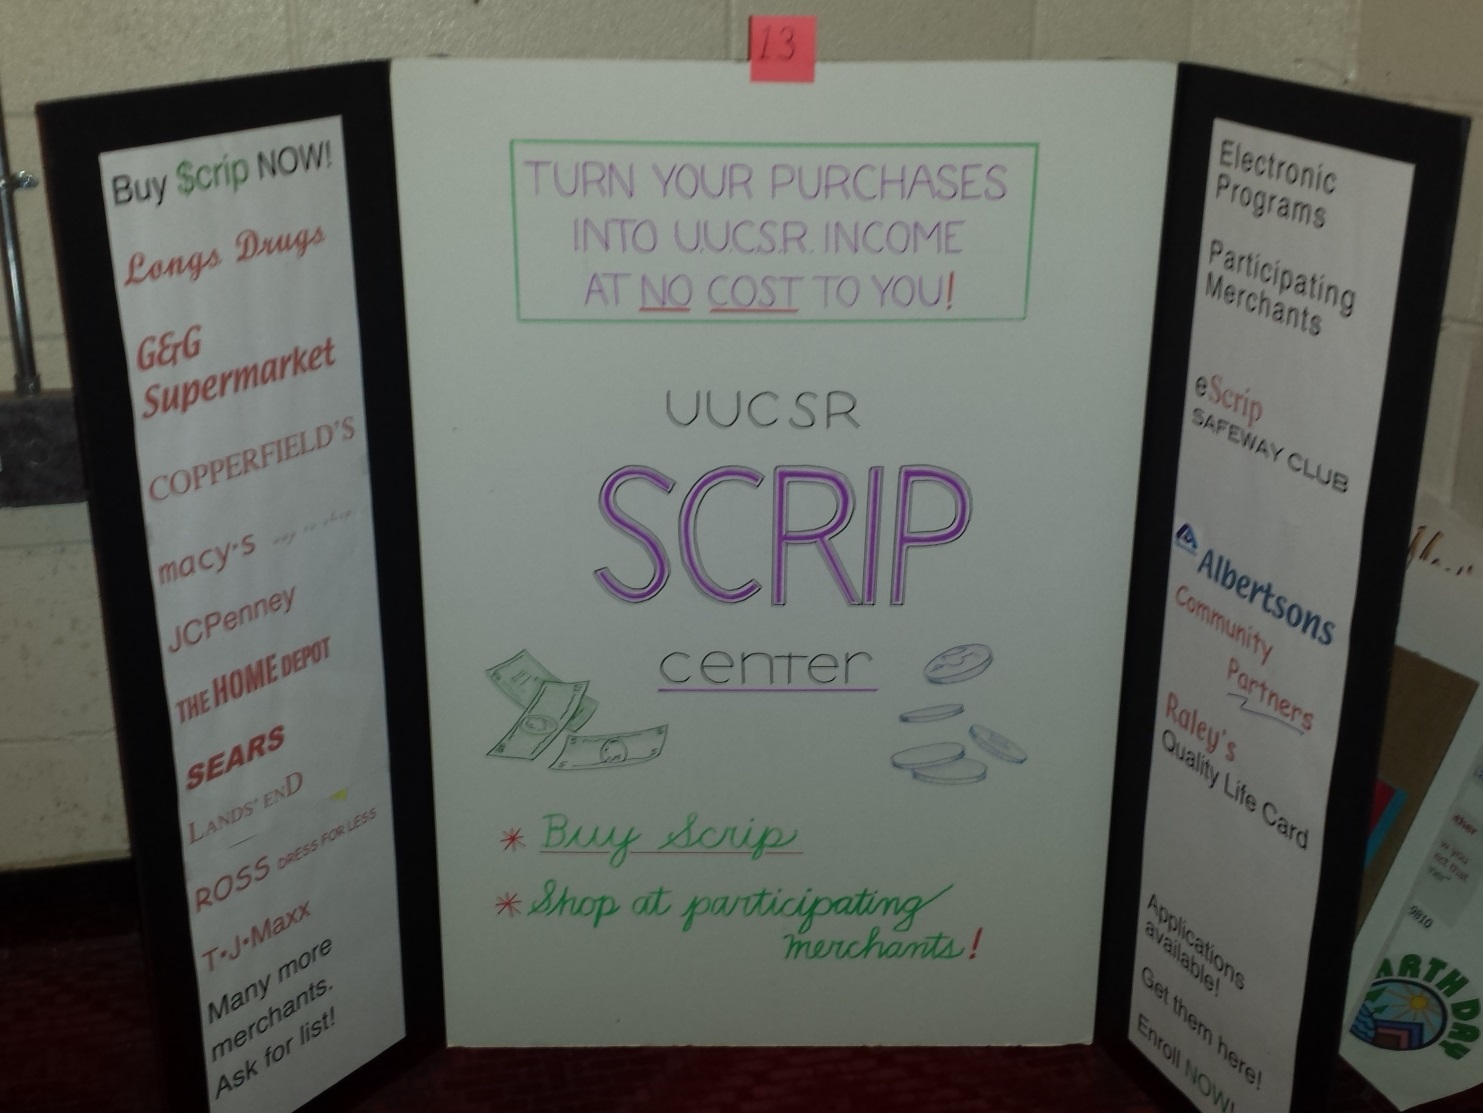 13
Buy $crip NOW!
Longs Drugs
G&G
Supermarket
COPPERFIELD'S
macy•s way to shop
JCPenney
THE HOME DEPOT
SEARS
LANDS' END
ROSS DRESS FOR LESS
T•J•Maxx
Many more
merchants.
Ask for list!
TURN YOUR PURCHASES
INTO U.U.C.S.R. INCOME
AT NO COST TO YOU!
UUCSR
SCRIP
center
* Buy Scrip
* Shop at participating
merchants!
Electronic
Programs
Participating
Merchants
eScrip
SAFEWAY CLUB
Albertsons
Community
Partners
Raley's
Quality Life Card
Applications
available!
Get them here!
Enroll NOW!
9810
EARTH DAY